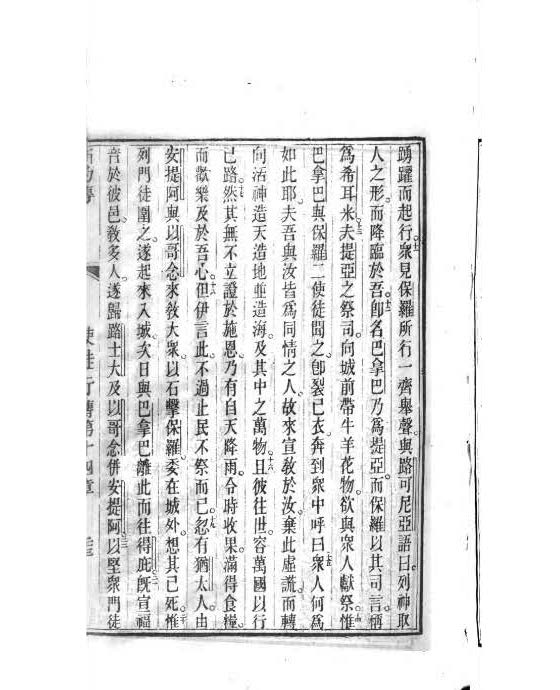 踴躍而起行。十一衆見保羅所行一齊舉聲。與路可尼亞語曰。列神取
人之形。而降臨於吾。十二卽名巴拿巴乃爲提亞。而保羅以其司言。稱
爲希耳米。十三夫提亞之祭司。向城前帶牛羊花物。欲與衆人獻祭。惟
巴拿巴與保羅二使徒聞之。卽裂己衣。奔到衆中呼曰。十五衆人何爲
如此耶。夫吾與汝皆爲同情之人。故來宣敎於汝。棄此虛謊。而轉
向活神造天造地並造海。及其中之萬物。十六且彼往世。容萬國以行
己路。然其無不立證於施恩。乃有自天降雨。令時收果。滿得食糧。
而歡樂及於吾心。十八但伊言此。不過止民不祭而已。十九忽有猶太人。由
安提阿與以哥念來敎大衆。以石擊保羅。委在城外。想其已死。惟
列門徒圍之。遂起來入城。次日與巴拿巴離此而往得庇。旣宣福
音於彼邑。敎多人。遂歸路士大及以哥念併安提阿。以堅衆門徒
使徒行傳第十四章